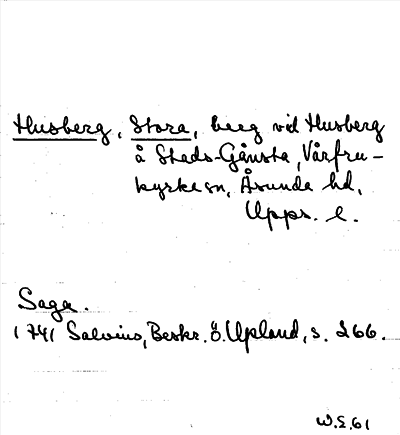 Husberg, Stora, berg vid Husberg
å Stads-Gånsta, Vårfru-
kyrka sn, Åsunda hd,
Upps. l.
Saga.
1741 Salvius, Beskr. ö. Upland, s. 266.
W.E.61